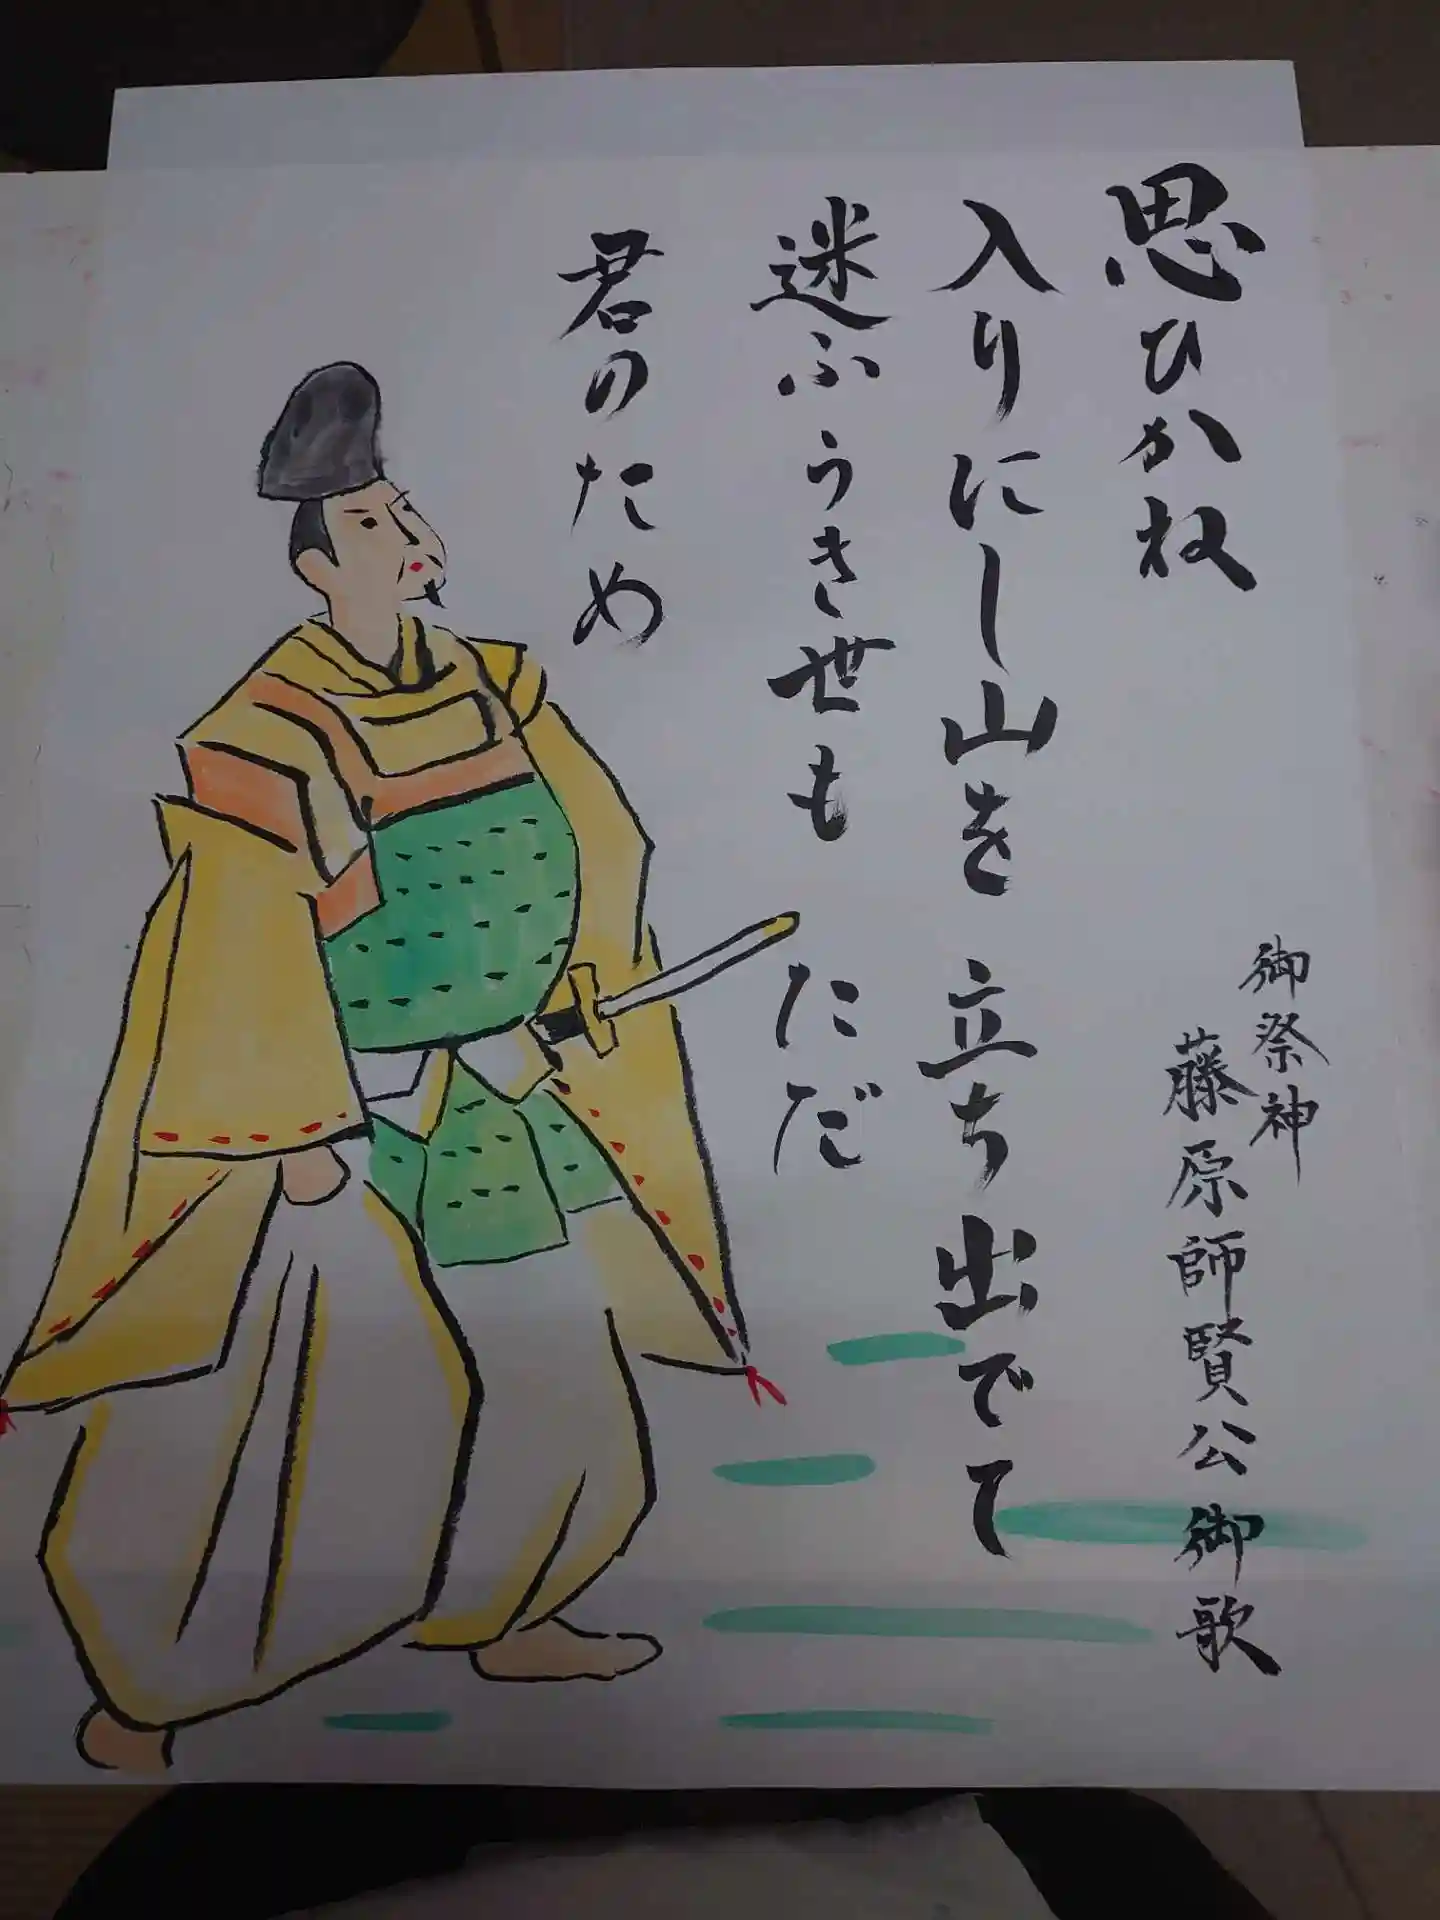 御祭神
藤原師賢公御歌
思ひかね
入りにし山を立ち出でて
迷ふうき世も ただ
君のため